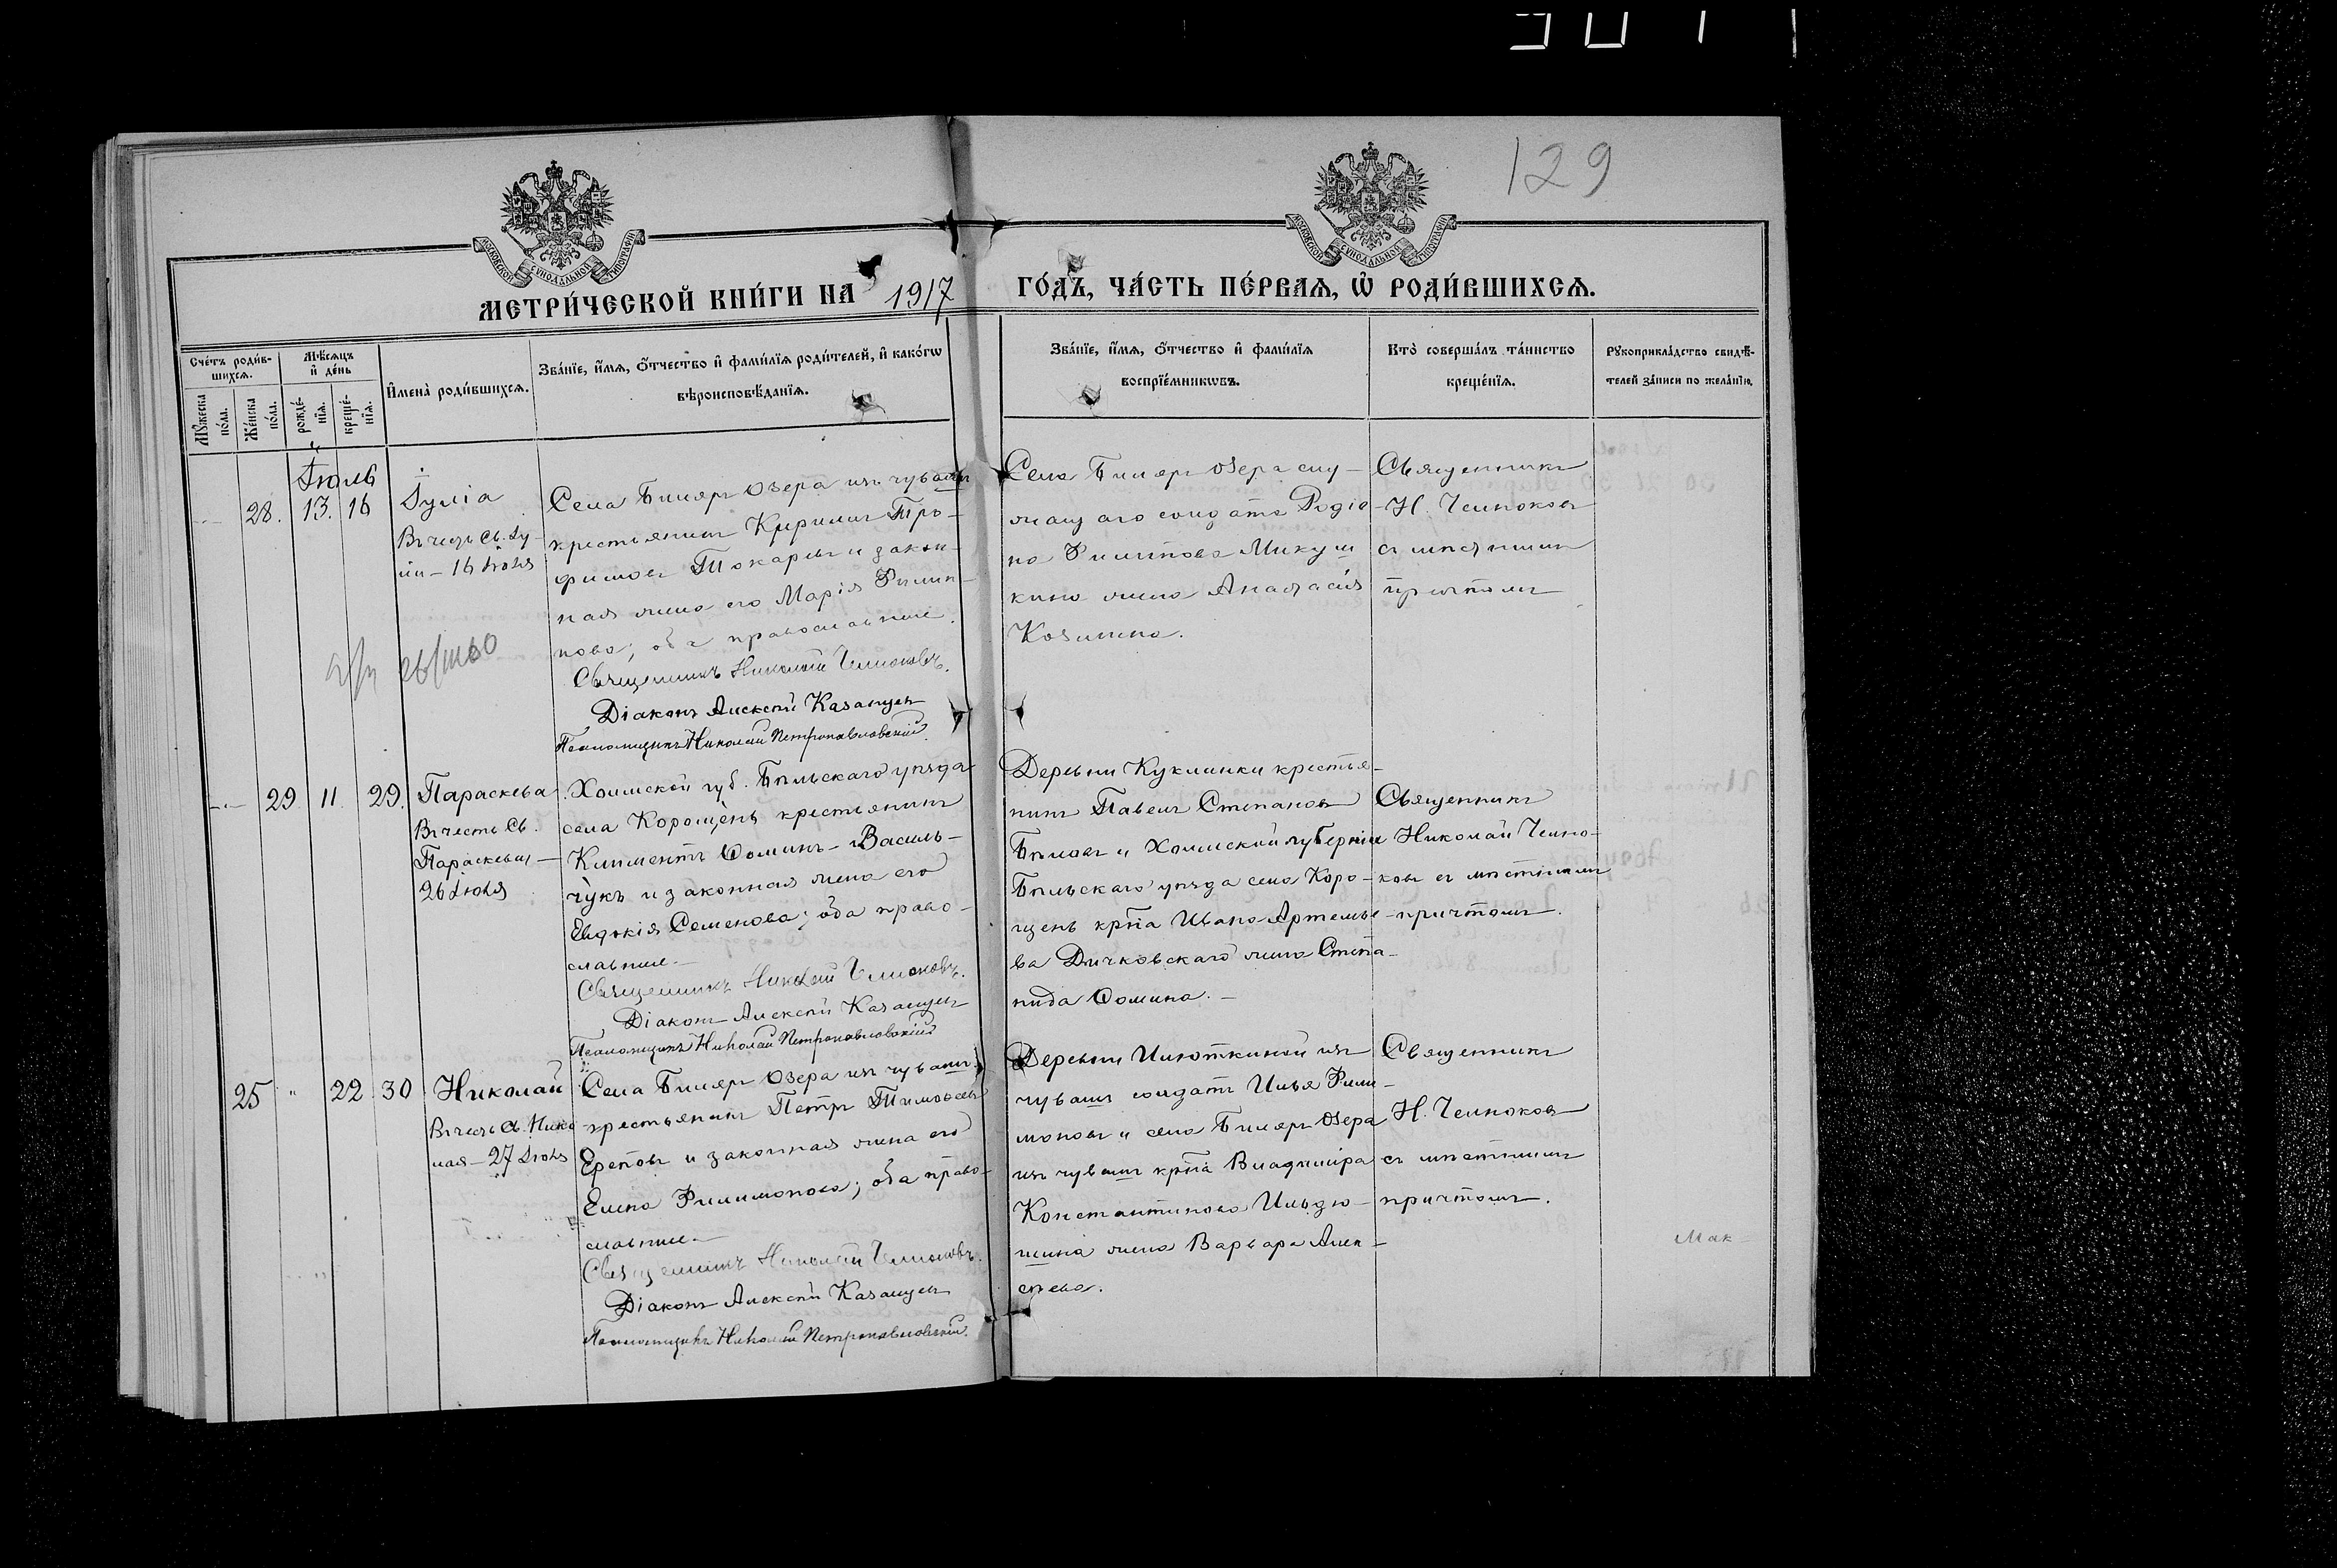 129
МОСКОВСКОЙ СѴНОДАЛЬНОЙ ТИПОГРАФІИ
МОСКОВСКОЙ СѴНОДАЛЬНОЙ ТИПОГРАФІИ
МЕТРИ́ЧЕСКОЙ КНИ́ГИ НА 1917 ГО́ДЪ, ЧА́СТЬ ПЕ́РВАѦ, Ѡ҆ РОДИ́ВШИХСѦ.
Сче́тъ роди́в-
шихсѧ.
Мꙋ́жеска по́ла.
Же́нска по́ла.
Мѣ́сѧцъ и҆ де́нь
рожде́-нїѧ.
креще́-нїѧ.
И҆мена̀ роди́вшихсѧ.
Зва́нїе, и҆́мѧ, ѻ҆́тчество и҆ фами́лїѧ роди́телей, и҆ како́гѡ
вѣроисповѣ́данїѧ.
Зва́нїе, и҆́мѧ, ѻ҆́тчество и҆ фами́лїѧ
воспрїе́мникѡвъ.
Кто̀ соверша́лъ та́инство
креще́нїѧ.
Рꙋкоприкла́дство свидѣ́-
телей за́писи по жела́нїю.
Іюль
28. 13. 16
Іулія
Въ честь Св. Іу-
ліи – 16 Іюля
Села Биляръ Озера изъ чувашъ
крестьянинъ Кириллъ Тро-
фимовъ Токаревъ и закон-
ная жена его Марія Филип-
пова; оба православные.
Священникъ Николай Челноковъ.
Діаконъ Алексѣй Казанцевъ
Псаломщикъ Николай Петропавловскій.
Села Биляръ Озера слу-
жащаго солдата Родіо-
на Филиппова Микуш-
кина жена Анастасія
Козьмина.
Священникъ
Н. Челноковъ
съ мѣстнымъ
причтомъ
29 11. 29.
Параскева
Въ честь Св.
Параскевы –
26 Іюля
Холмской губ. Бѣльскаго уѣзда
села Корощенъ крестьянинъ
Климентъ Ѳоминъ – Василь-
чукъ и законная жена его
Евдокія Семенова; оба право-
славные.
Священникъ Николай Челноковъ.
Діаконъ Алексѣй Казанцевъ
Псаломщикъ Николай Петропавловскій
Деревни Куклинки крестья-
нинъ Павелъ Степановъ
Бѣловъ и Холмской губерніи
Бѣльскаго уѣзда села Коро-
щенъ крⷭ҇на Ивана Артемье-
ва Дичковскаго жена Степа-
нида Ѳомина. –
Священникъ
Николай Челно-
ковъ съ мѣстнымъ
причтомъ.
25 " 22 30
Николай
Въ честь Св. Нико-
лая – 27 Іюля
Села Биляръ Озера изъ чувашъ
крестьянинъ Петръ Тимоѳеевъ
и законная жена его
Елена Филимонова; оба право-
славные.
Священникъ Николай Челноковъ.
Діаконъ Алексѣй Казанцевъ
Псаломщикъ Николай Петропавловскій.
Деревни Илюткиной изъ
чувашъ солдатъ Илья Фили-
моновъ и села Биляръ Озера
изъ чувашъ крⷭ҇на Владиміра
Константинова Ильдю-
жена Варвара Алек-
сѣева.
Священникъ
Н. Челноковъ
съ мѣстнымъ
причтомъ.